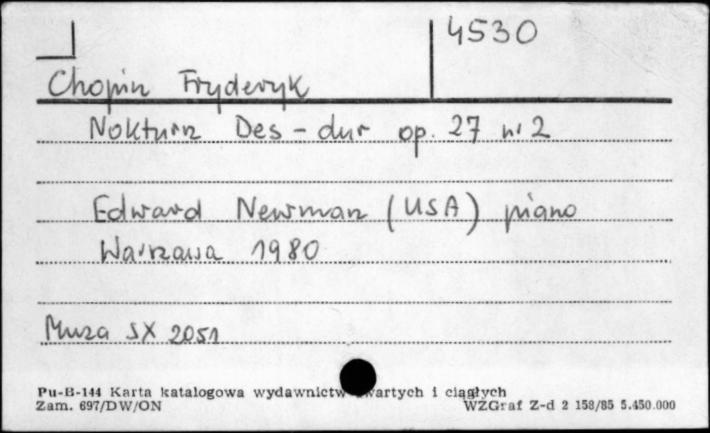 4530
Chopin Fryderyk
Nokturn Des-dur op. 27 nr 2
Edward Newman (USA) piano
Warszawa 1980
Muza SX 2051
Pu-B-144 Karta katalogowa wydawnictw zwartych i ciągłych
Zam. 697/DW/ON WZGraf Z-d 2 158/85 5.450.000